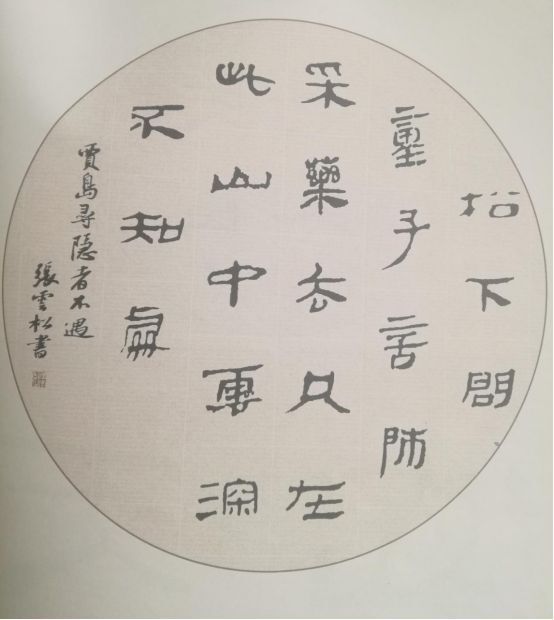 松下問
童子言師
采藥去只在
此山中雲深
不知處
賈島尋隱者不遇
張雲松書